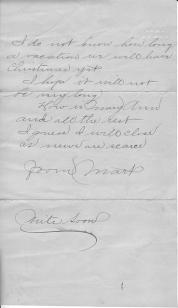 I do not know how long
a vacation we will have
Christmas yet
I hope it will not
be very long
How is Mary Ann
and all the rest
I guess I will close
as news are scarce
From Mark
Write Soon